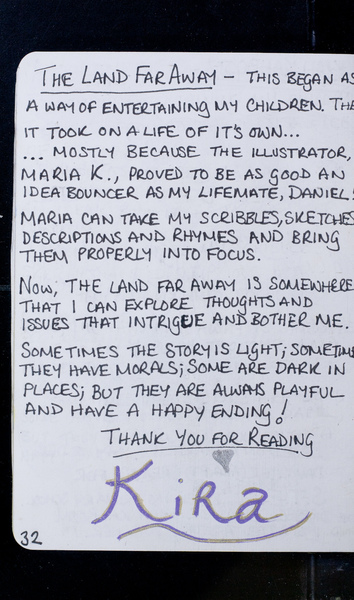 THE LAND FAR AWAY – THIS BEGAN AS
A WAY OF ENTERTAINING MY CHILDREN. THE
IT TOOK ON A LIFE OF IT'S OWN...
... MOSTLY BECAUSE THE ILLUSTRATOR,
MARIA K., PROVED TO BE AS GOOD AN
IDEA BOUNCER AS MY LIFEMATE, DANIEL!
MARIA CAN TAKE MY SCRIBBLES, SKETCHES
DESCRIPTIONS AND RHYMES AND BRING
THEM PROPERLY INTO FOCUS.
NOW, THE LAND FAR AWAY IS SOMEWHERE
THAT I CAN EXPLORE THOUGHTS AND
ISSUES THAT INTRIGUE AND BOTHER ME.
SOMETIMES THE STORY IS LIGHT; SOMETIME
THEY HAVE MORALS; SOME ARE DARK IN
PLACES; BUT THEY ARE ALWAYS PLAYFUL
AND HAVE A HAPPY ENDING!
THANK YOU FOR READING
Kira
32